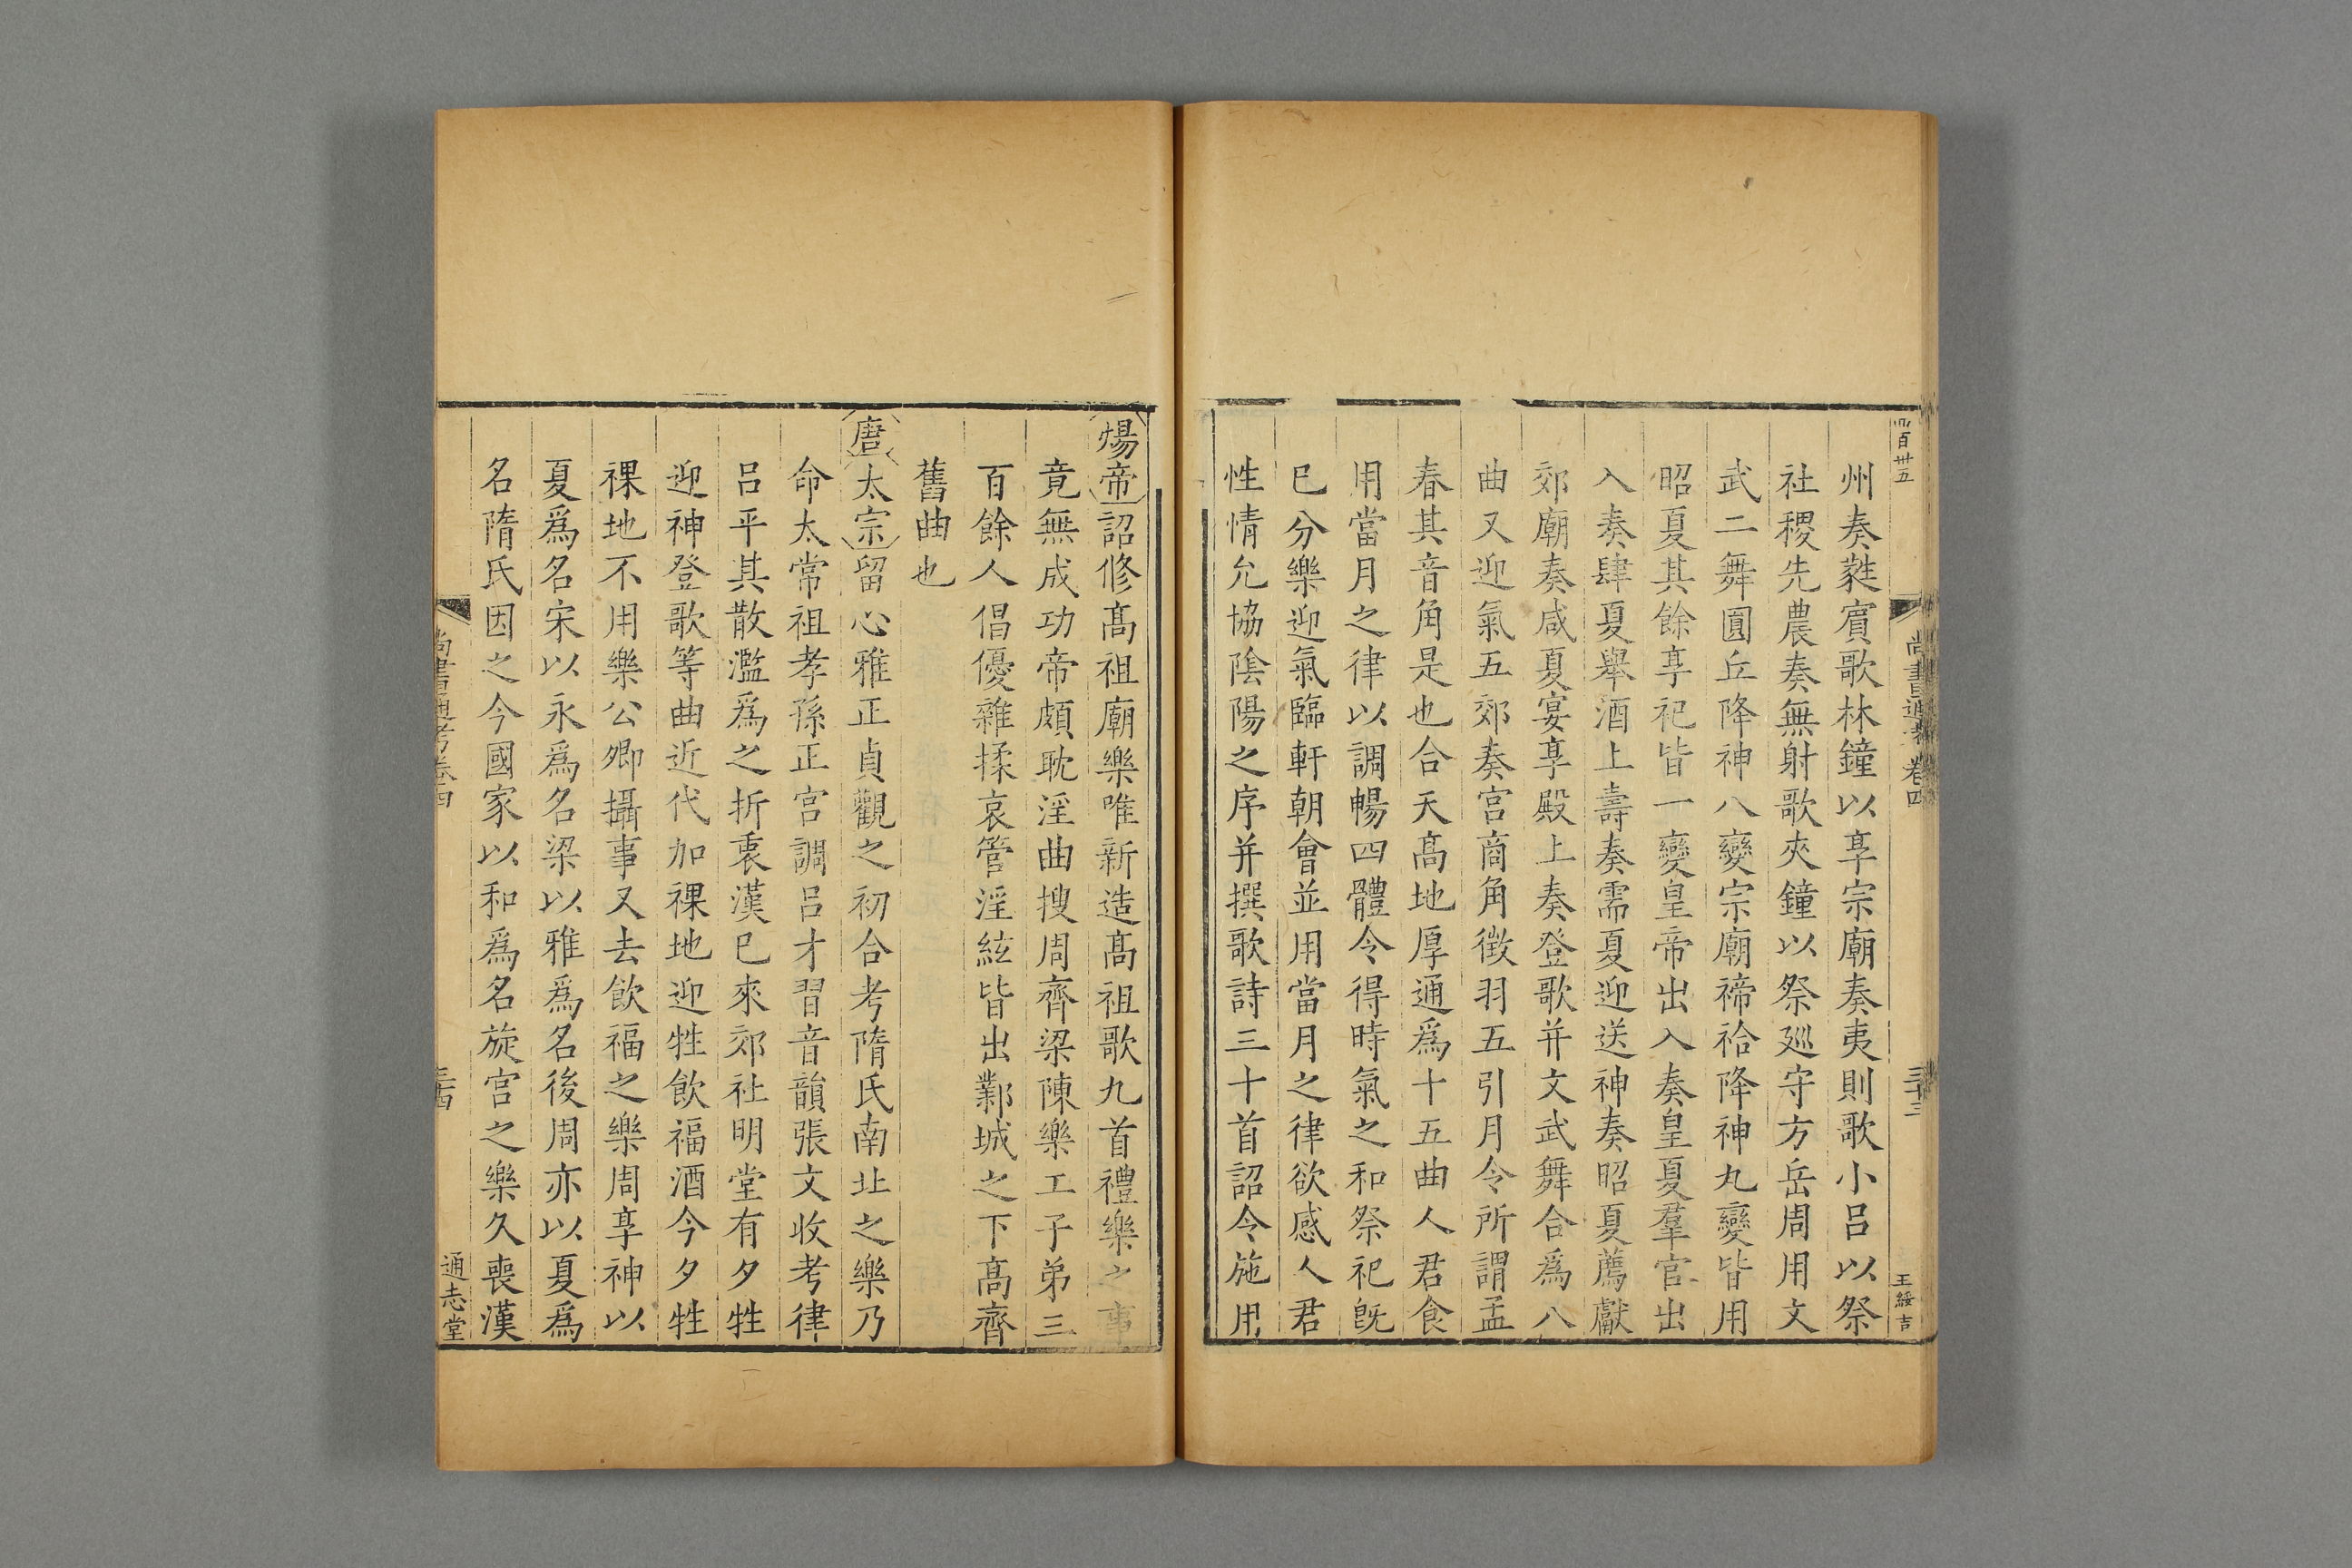 百卅五
尚書通考卷四
三十三
王綏吉
州奏蕤賔歌林鐘以享宗廟奏夷則歌小呂以祭
社稷先農奏無射歌夾鐘以祭廵守方岳周用文
武二舞圓丘降神八變宗廟禘祫降神九變皆用
昭夏其餘享祀皆一變皇帝出入奏皇夏羣官出
入奏肆夏舉酒上壽奏需夏迎送神奏昭夏薦獻
郊廟奏咸夏宴享殿上奏登歌并文武舞合爲八
曲又迎氣五郊奏宫商角徴羽五引月令所謂孟
春其音角是也合天髙地厚通爲十五曲人君食
用當月之律以調暢四體令得時氣之和祭祀旣
已分樂迎氣臨軒朝會並用當月之律欲感人君
性情允協隂陽之序并撰歌詩三十首詔令施用
煬帝詔修髙祖廟樂唯新造髙祖歌九首禮樂之事
竟無成功帝頗耽淫曲搜周齊梁陳樂工子弟三
百餘人倡優雜揉哀管淫絃皆出鄴城之下髙齊
舊曲也
唐太宗留心雅正貞觀之初合考隋氏南北之樂乃
命太常祖孝孫正宫調呂才習音韻張文收考律
呂平其散濫爲之折衷漢已來郊社明堂有夕牲
迎神登歌等曲近代加祼地迎牲飮福酒今夕牲
祼地不用樂公卿攝事又去飮福之樂周享神以
夏爲名宋以永爲名梁以雅爲名後周亦以夏爲
名隋氏因之今國家以和爲名旋宫之樂久喪漢
尚書通考卷四
三十四
通志堂